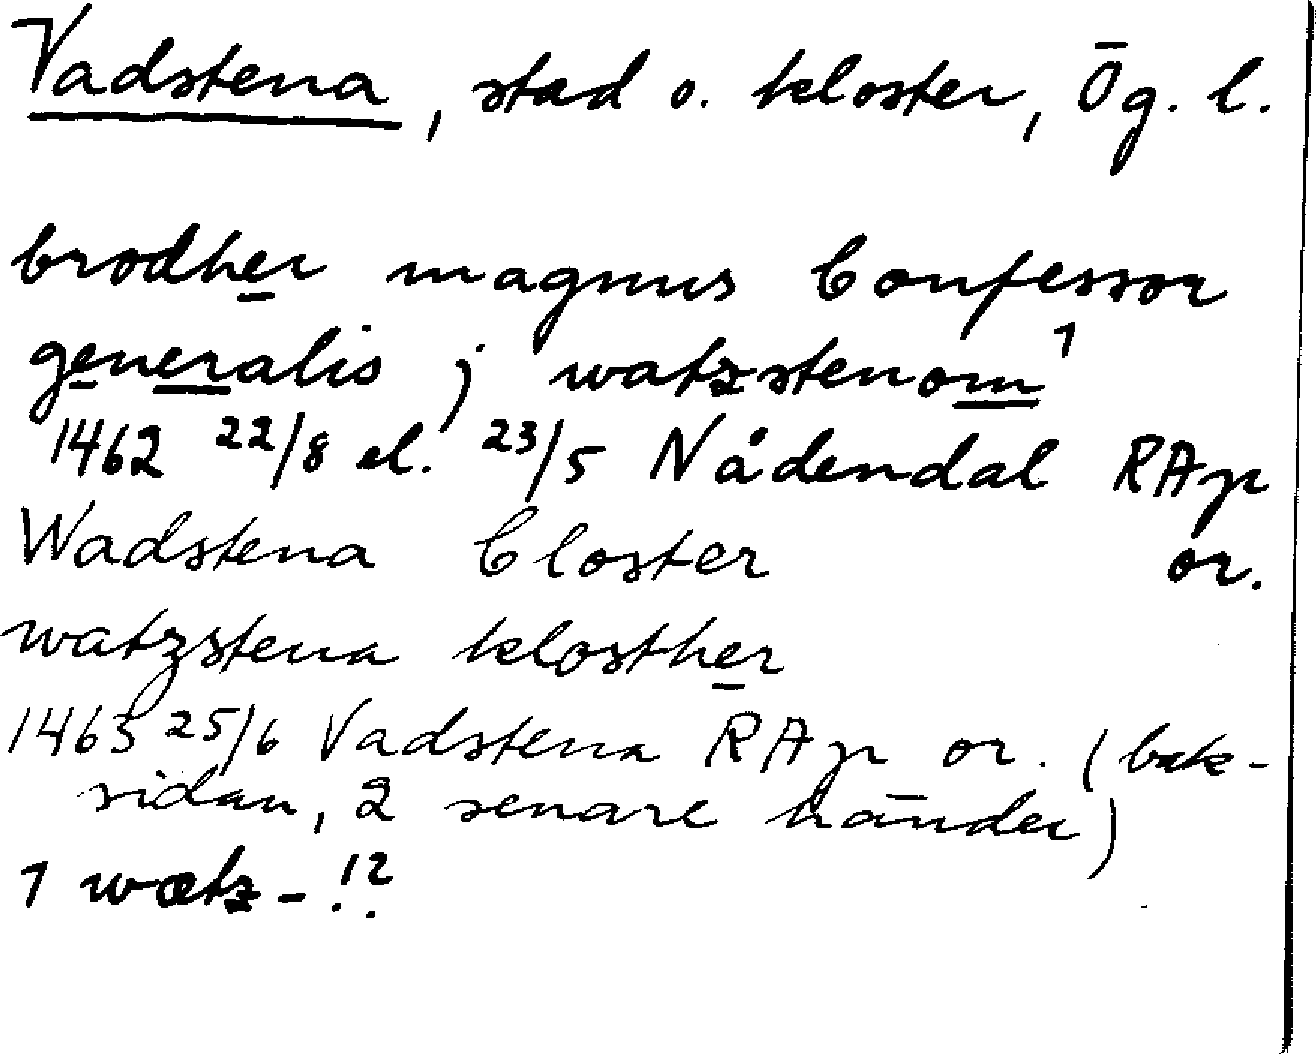 Vadstena, stad o. kloster, Ög. l.
brodher magnus Confessor
generalis j watzstenom¹
1462 22/8 el. 23/5 Nådendal RAp
Wadstena Closter or.
watzstena klosther
1463 25/6 Vadstena RAp or. (bak-
sidan, 2 senare händer)
1 wætz-!?